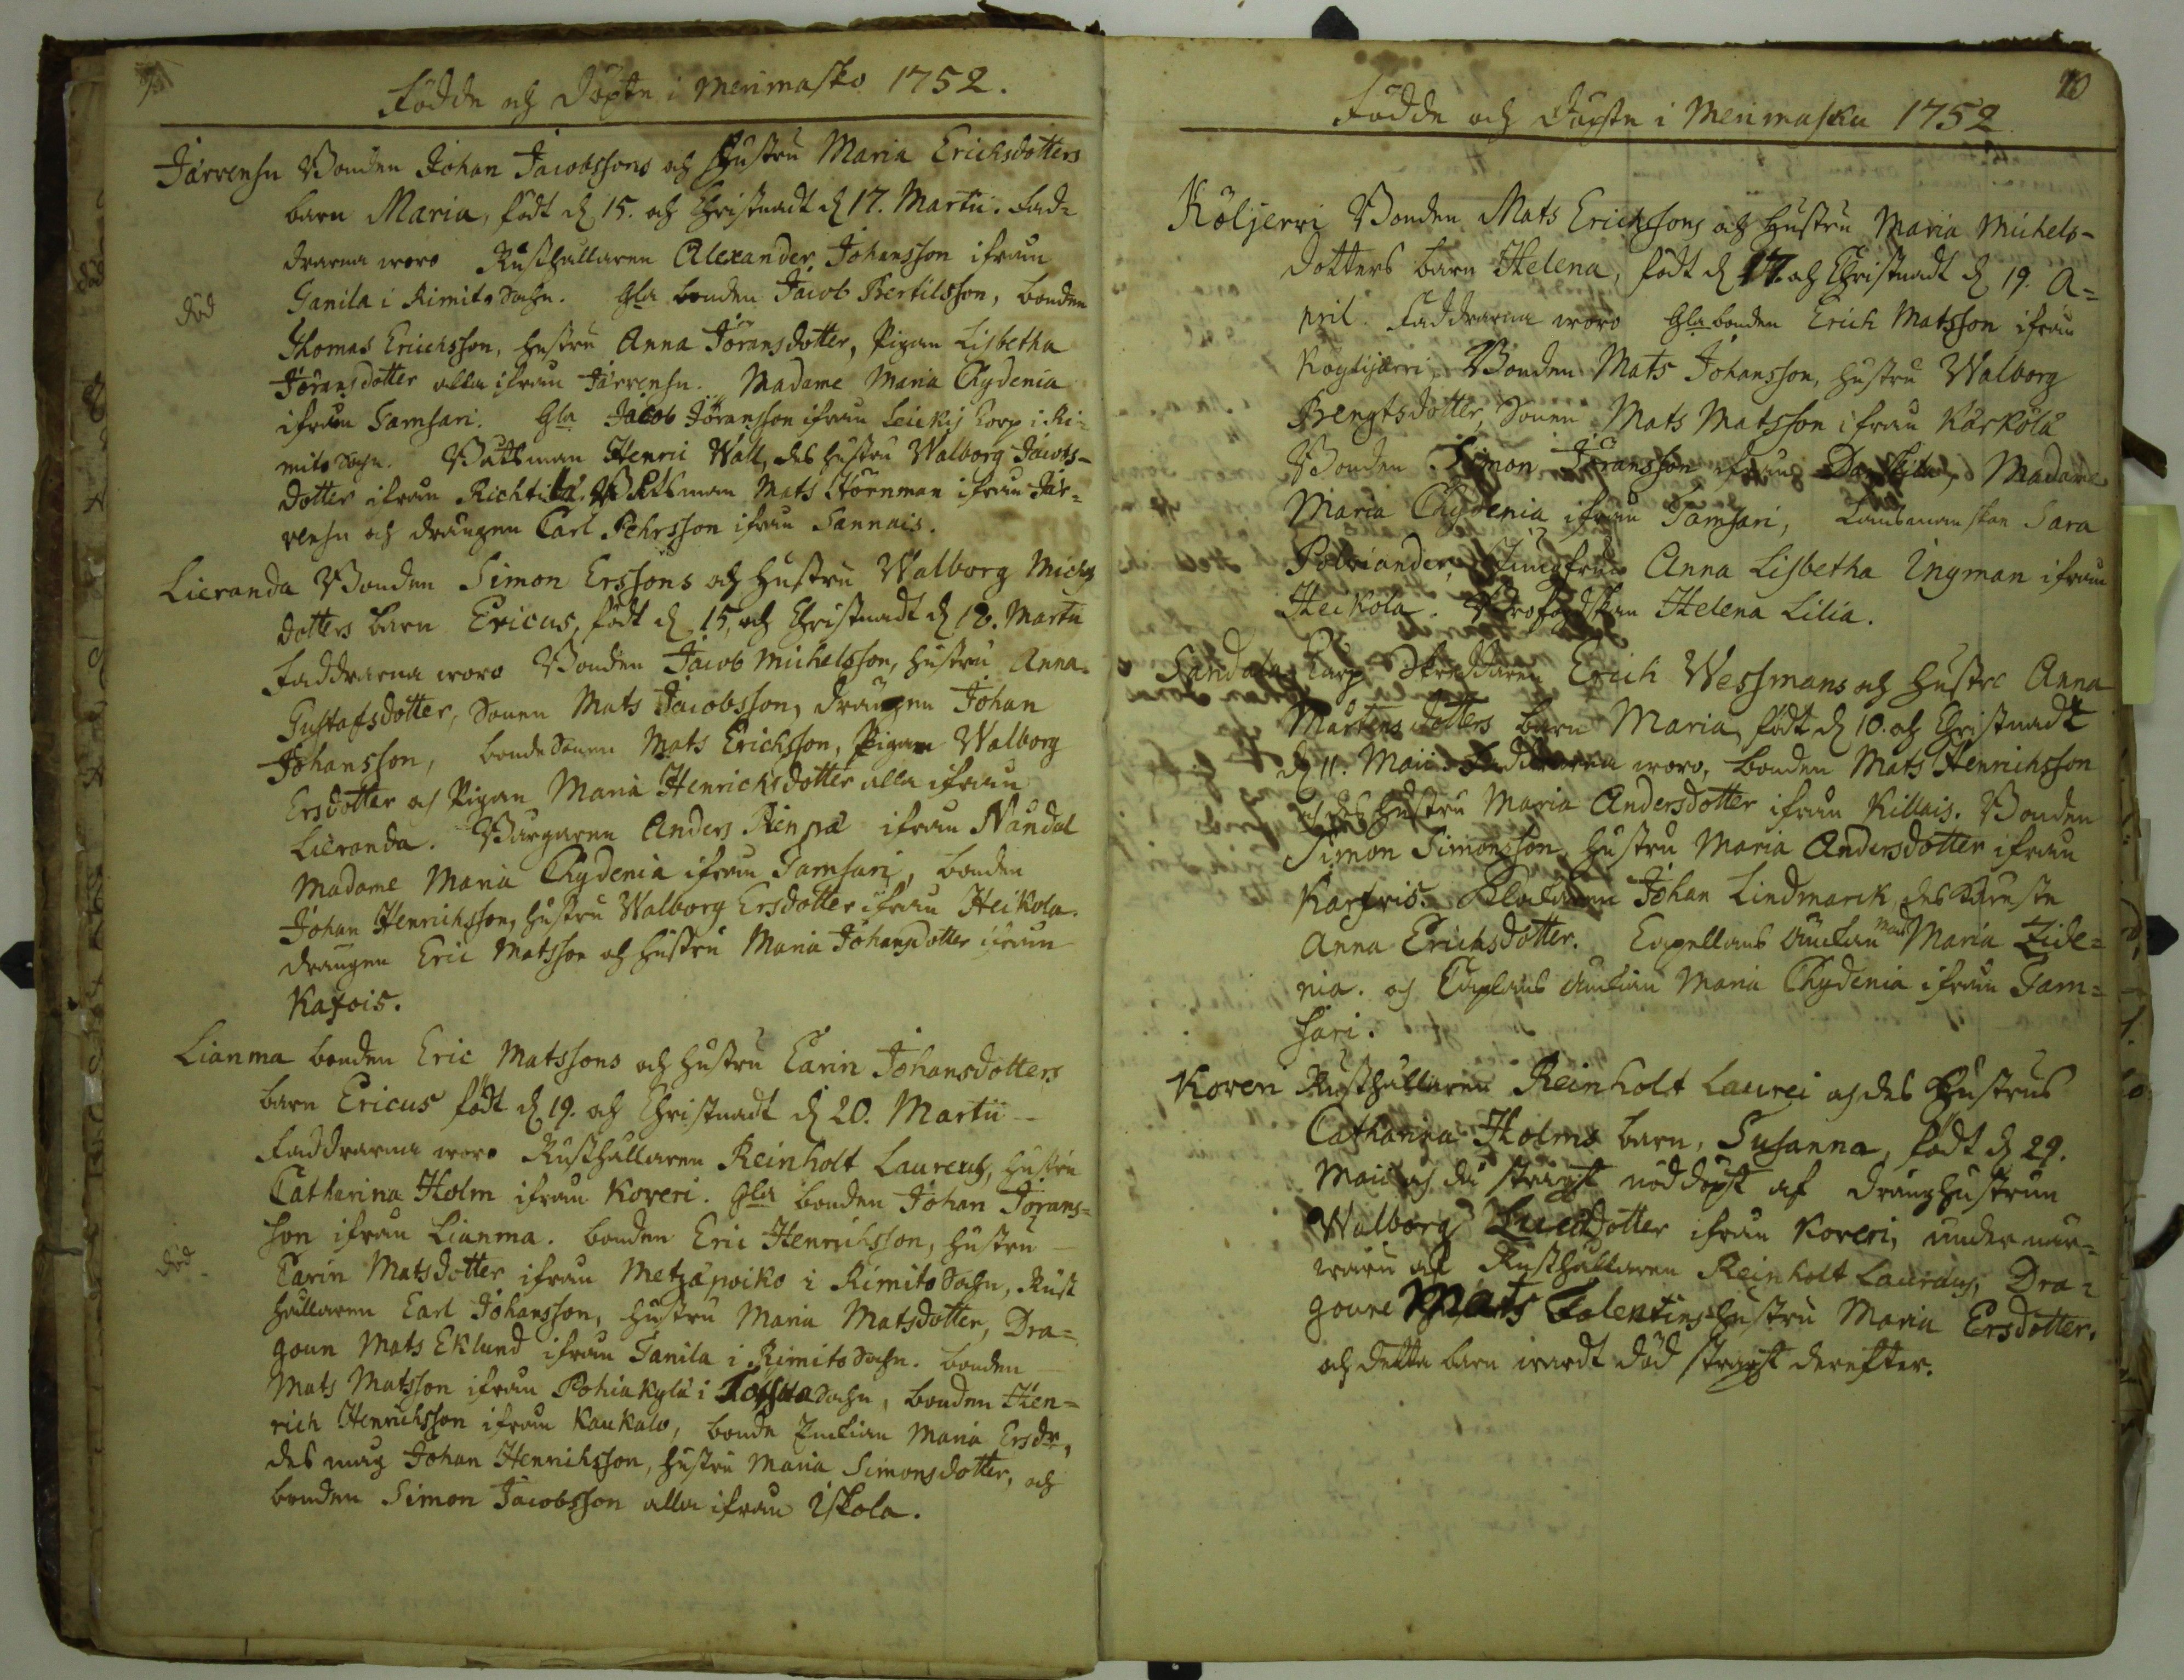 Födde och Döpte i Merimasko 1752.
Järvensu Bonden Johan Jacobssons och Hustru Maria Erichsdotters
barn Maria, födt d. 15. och Christnadt d. 17. Martii. Fad=
drarna woro Rusthållaren Alexander Johansson ifrån
Tanila i Rimito Sochn. Gla bonden Jacob Bertilsson, bonden
död
Thomas Erichsson, hustru Anna Jöransdotter, Pigan Lisbetha
Jöransdotter alla ifrån Järvensu. Madame Maria Chydenia
ifrån Samsari. Gla Jacob Jöransson ifrån Leikis Torp i Ri=
mito Sochn. Båtsman Henric Wall, des hustru Walborg Jacobs-
dotter ifrån Richtilä. Båtsman Mats Hörnman ifrån Jär=
vensu och drängen Carl Pehrsson ifrån Sannais.
Lieranda Bonden Simon Erssons och hustru Walborg Michels
dotters barn Ericus, födt d. 15, och Christnadt d. 18. Martii
Faddrarna woro Bonden Jacob Michelsson, hustru Anna
Gustafsdotter, Sonen Mats Jacobsson, drängen Johan
Johansson, bonde Sonen Mats Erichsson, Pigan Walborg
Ersdotter och Pigan Maria Henrichsdotter alla ifrån
Lieranda. Borgaren Anders Rienpä ifrån Nåndal
Madame Maria Chydenia ifrån Samsari, bonden
Johan Henrichsson, hustru Walborg Ersdotter ifrån Heikola.
drängen Eric Matsson och hustru Maria Johansdotter ifrån
Kafois.
Lianma bonden Eric Matssons och hustru Carin Johansdotters
barn Ericus födt d. 19. och Christnadt d. 20. Martii
Faddrarna woro Rusthållaren Reinholt Laureus, hustru
Catharina Holm ifrån Koveri. Gla bonden Johan Jörans=
son ifrån Lianma. bonden Eric Henrichsson, hustru
död.
Carin Matsdotter ifrån Metzäpoiko i Rimito Sochn, Rust
hållaren Carl Johansson, hustru Maria Matsdotter, Dra=
goun Mats Eklund ifrån Tanila i Rimito Sochn. bonden
Mats Matsson ifrån Pohiakylä i Sochn, bonden Hen=
rich Henrichsson ifrån Kaukalo, bonde Enckian Maria Ersdr,
des mag Johan Henrihsson, hustru Maria Simonsdotter, och
bonden Simon Jacobsson alla ifrån Iskola.
10
Födde och Döpte i Merimasku 1752
Köljerri Bonden Mats Erichssons och hustru Maria Michels-
dotters barn Helena, födt d. 17. och Christnadt d. 19. A=
pril. Faddrarna woro Gla bonden Erich Matsson ifrån
Köylijärri, Bonden Mats Johansson, hustru Walborg
Bengtsdotter, Sonen Mats Matsson ifrån Kärkölä
Bonden Simon Jöransson ifrån Madame
Maria Chydenia ifrån Samsari, Länsmanskan Sara
Polviander, Jungfrun Anna Lisbetha Ingman ifrån
Heikola. Profogdskan Helena Lilia.
Sandala Torp Skräddaren Erich Wessmans och hustru Anna
Mårtensdotters barn Maria, födt d. 10. och Christnadt
d. 11. Maii. Faddrarna woro, bonden Mats Henrichsson
och des hustru Maria Andersdotter ifrån Killais. Bonden
Simon Simonsson, hustru Maria Andersdotter ifrån
Karfvis. Johan Lindmarck, des
Anna Erichsdotter. Capellans Änckan Mad Maria Zide=
nia. och Caplans Änckian Maria Chydenia ifrån Sam=
sari.
Koveri Rusthållaren Reinholt Laurei och des Hustrus
Catharina Holms barn, Susanna, födt d. 29.
Maii och då straxt nöddöpt af dränghustrun
Walborg Lucædotter ifrån Koveri, under när=
waru af Rusthållaren Reinholt Laureus, Dra=
goune Mats Falentins hustru Maria Ersdotter.
och detta barn wardt död straxt derefter.